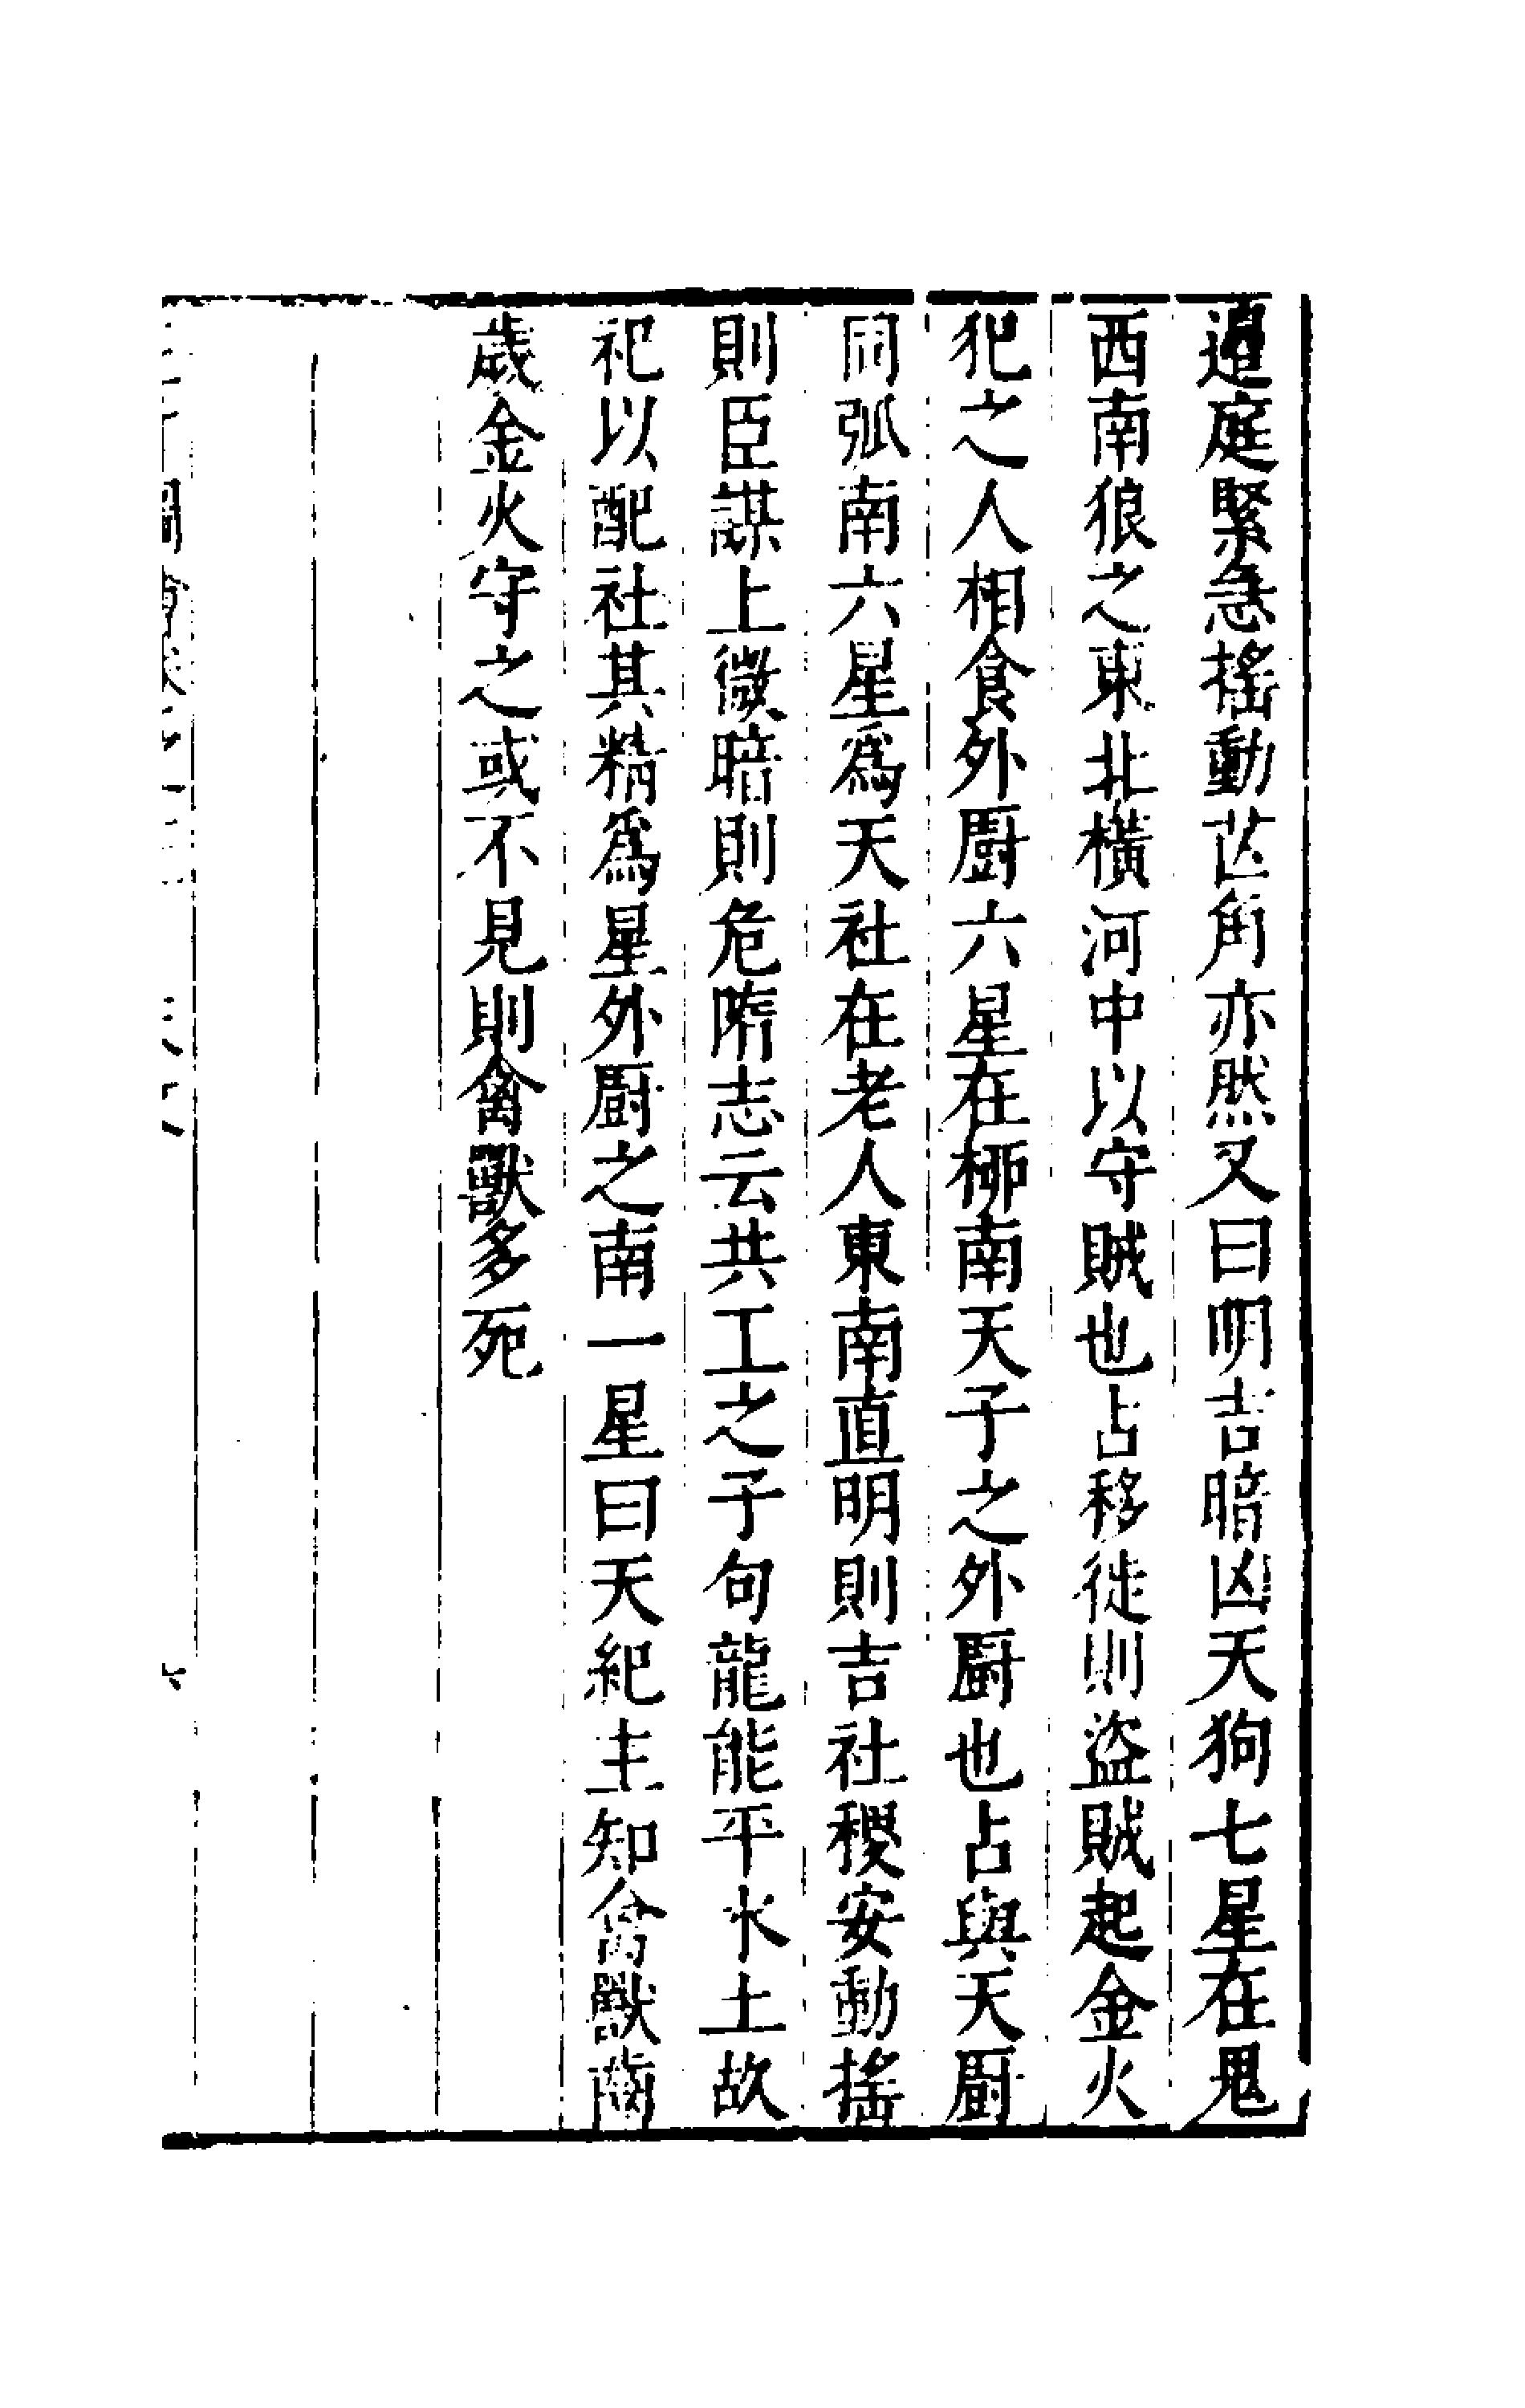 邊庭緊急搖動芒角亦然又曰明吉暗凶天狗七星在鬼
西南狼之東北橫河中以守賊也占移徙則盜賊起金火
犯之人相食外厨六星在柳南天子之外厨也占與天厨
同弧南六星爲天社在老人東南直明則吉社稷安動搖
則臣謀上微暗則危隋志云共工之子句龍能平水土故
祀以配社其精爲星外厨之南一星曰天紀主知禽獸齒
歲金火守之或不見則禽獸多死